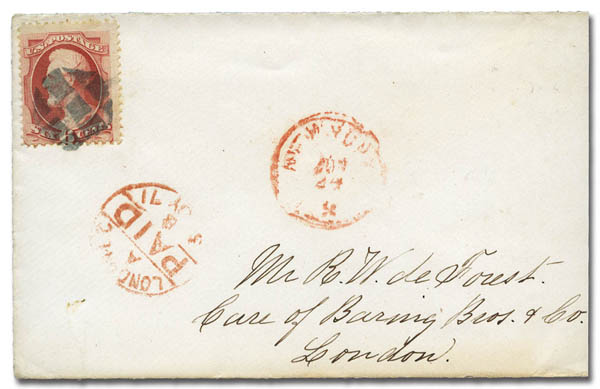 U.S. POSTAGE
SIX CENTS
NEW YORK
24
PAID
Mr R. W. de Forest.
Care of Baring Bros. & Co.
London.